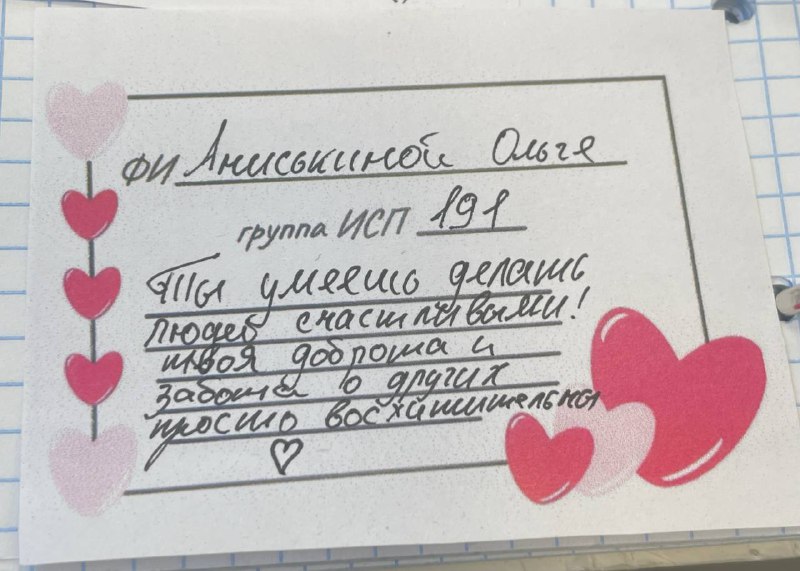 ФИ Аниськиной Ольге
группа ИСП 191
Ты умеешь делать
людей счастливыми!
твоя доброта и
забота о других
просто восхитительны